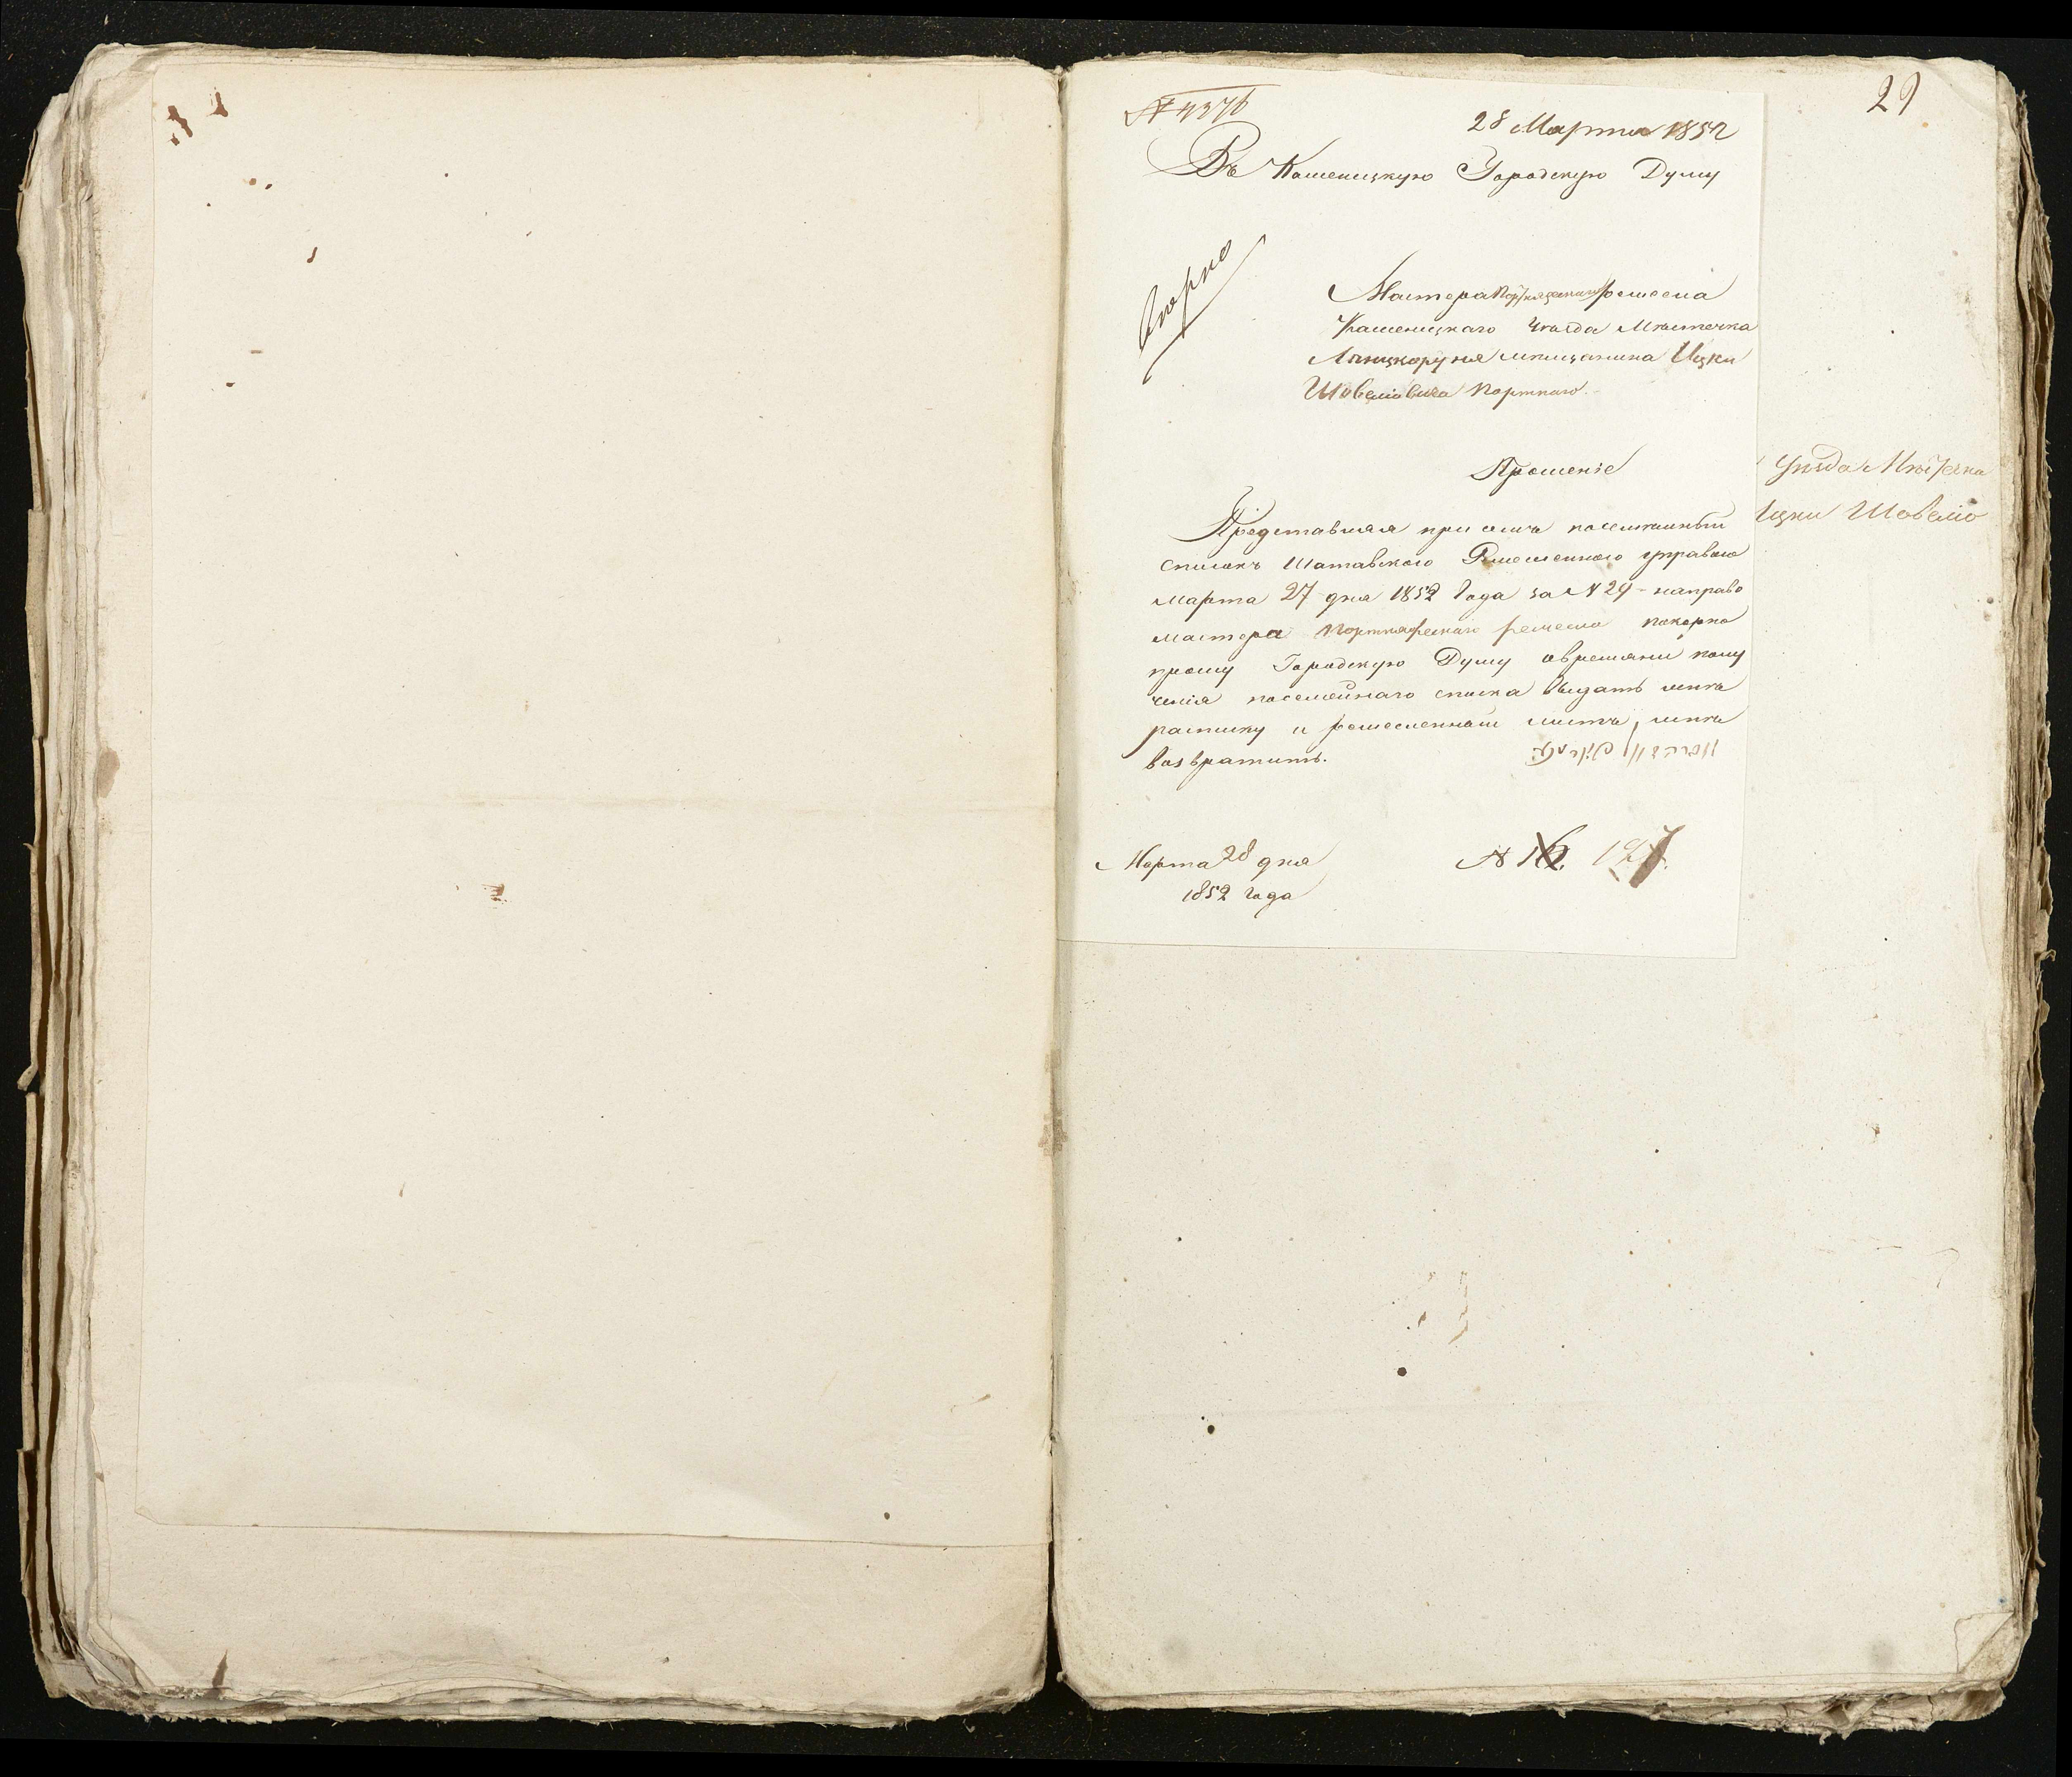 29
28 Марта 1852
Въ Каменецкую Городскую Думу
Мастера портняческаго ремесла
Каменецкаго уѣзда Мѣстечка
Лянцкоруня мѣщанина Ицки
Шовеліовича Портнаго.
Прошеніе
Представляя при семъ посемейный
списокъ Шатавского Ремесленного управого
Марта 27 дня 1852 года за № 29 направо
мастера портняческаго ремесла покорно
прошу Городскую Думу овремяни полу
ченія посемейнаго списка выдать мнѣ
расписку и ремесленный листъ мнѣ
возвратить.
Марта 28 дня
1852 года
№ 127.
уѣзда Мѣстечка
Ицки Шовеліо